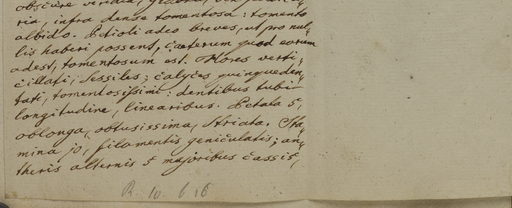 obscure viridia, glabra,
ria, infra dense tomentosa: tomento
albido. Petioli adeo breves, ut pro nul-
lis haberi possent, cæterum quod eorum
adest, tomentosum est. Flores verti-
cillati, sessiles; calyces quinqueden-
tati, tomentosissimi: dentibus tubi
longitudine, linearibus. Petala 5,
oblonga, obtusissima, striata. Sta-
mina 10, filamentis geniculatis; an-
theris alternis 5 majoribus cassis,
R. 10. 6 16